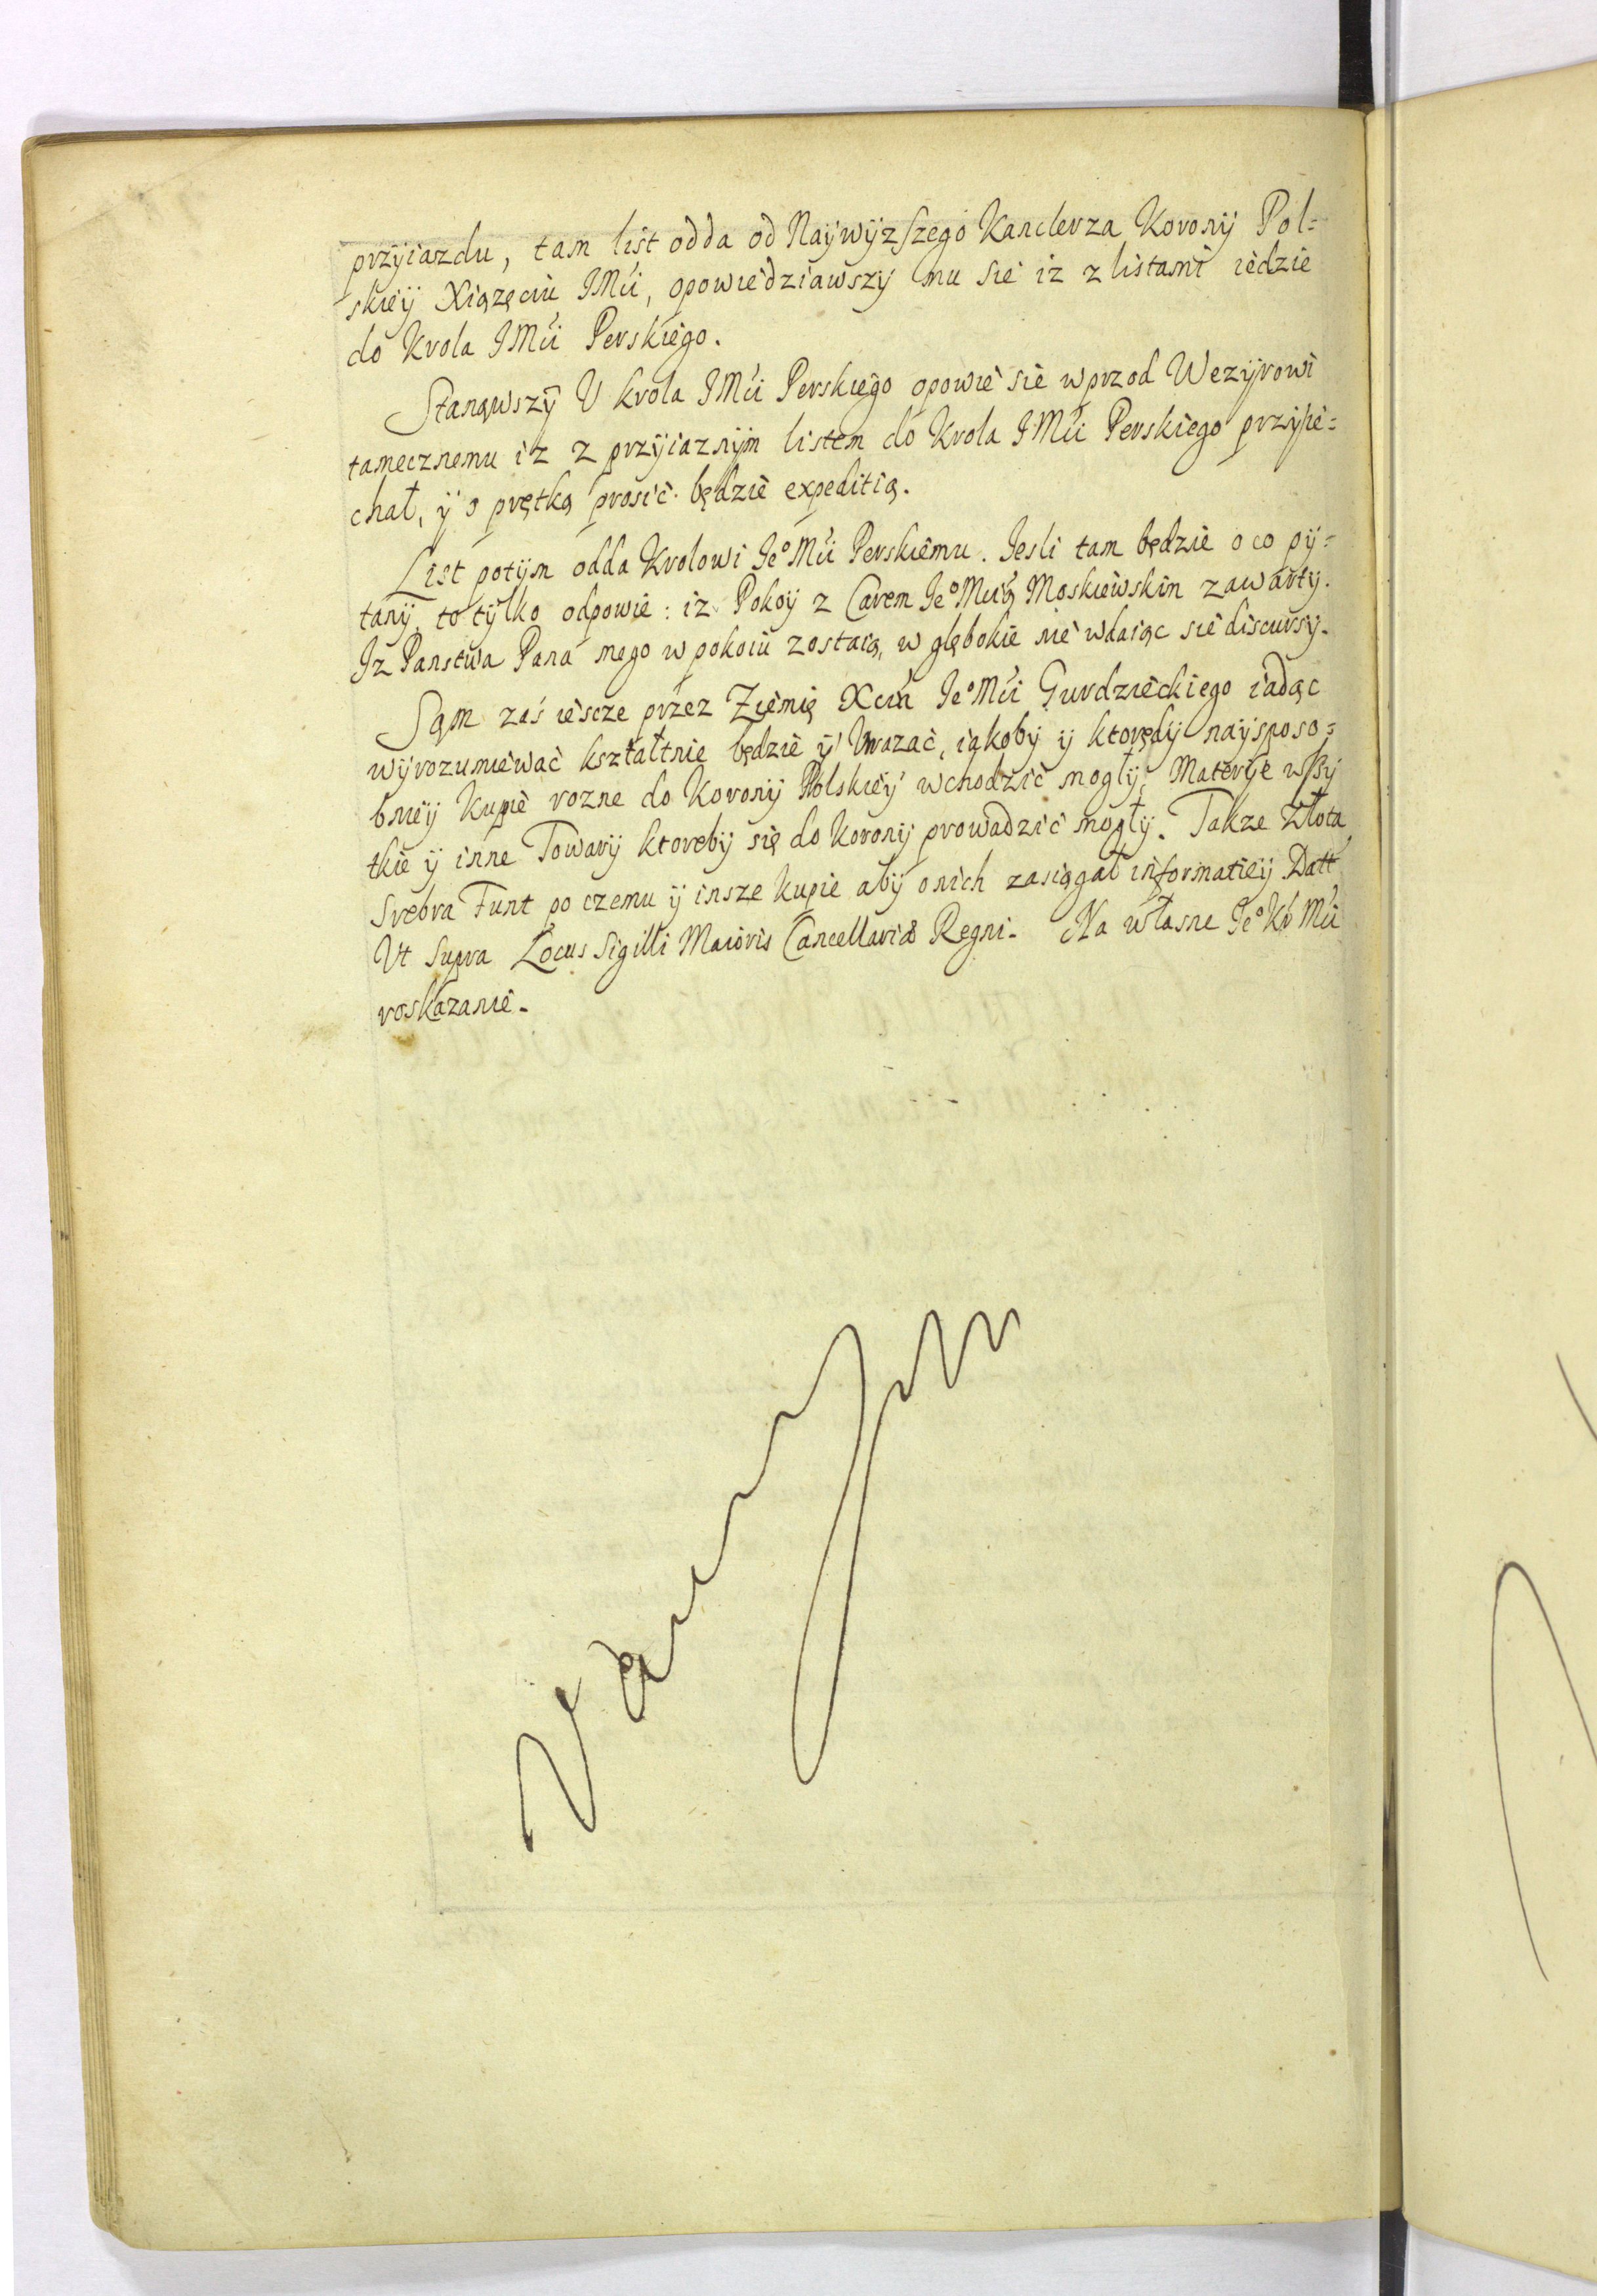 przyiazdu, tam list odda od Naywyzszego Kanclerza Korony Pol=
skiey Xiązęciu JMći, opowiedziawszy mu sie iz z listami iedzie
do Krola JMći Perskiego.
Stanąwszy U krola JMći Perskiego opowie sie wprzod Wezyrowi
tamecznemu iz z przyiaznym listem do Krola JMći Perskiego przyie=
chał, y o prętką prosić będzie expeditią.
List potym odda Krolowi Ie° Mći Perskiemu. Iesli tam będzie o co py=
tany, to tylko odpowie: iz Pokoy z Carem Ie° Mcią Moskiewskim zawarty.
Iz Panstwa Pana mego w pokoiu zostaią, w głębokie nie wdaiąc sie discursy.
Sąm zaś iescze przez Ziemię Xcia Ie° Mći Gurdzieckiego iadąc
wyrozumiewać kształtnie będzie y Uwazać, iakoby y ktorędy naysposo=
bniey Kupie rozne do Korony Polskiey wchodzić mogły, Materye wßy
tkie y inne Towary ktoreby się do Korony prowadzić mogły. Takze złota
Srebra Funt po czemu y insze kupie aby o nich zasiągał informatiey Datt
Vt Supra Locus Sigilli Maioris Cancellariæ Regni. Na własne Ie° Kr Mći
roskazanie.